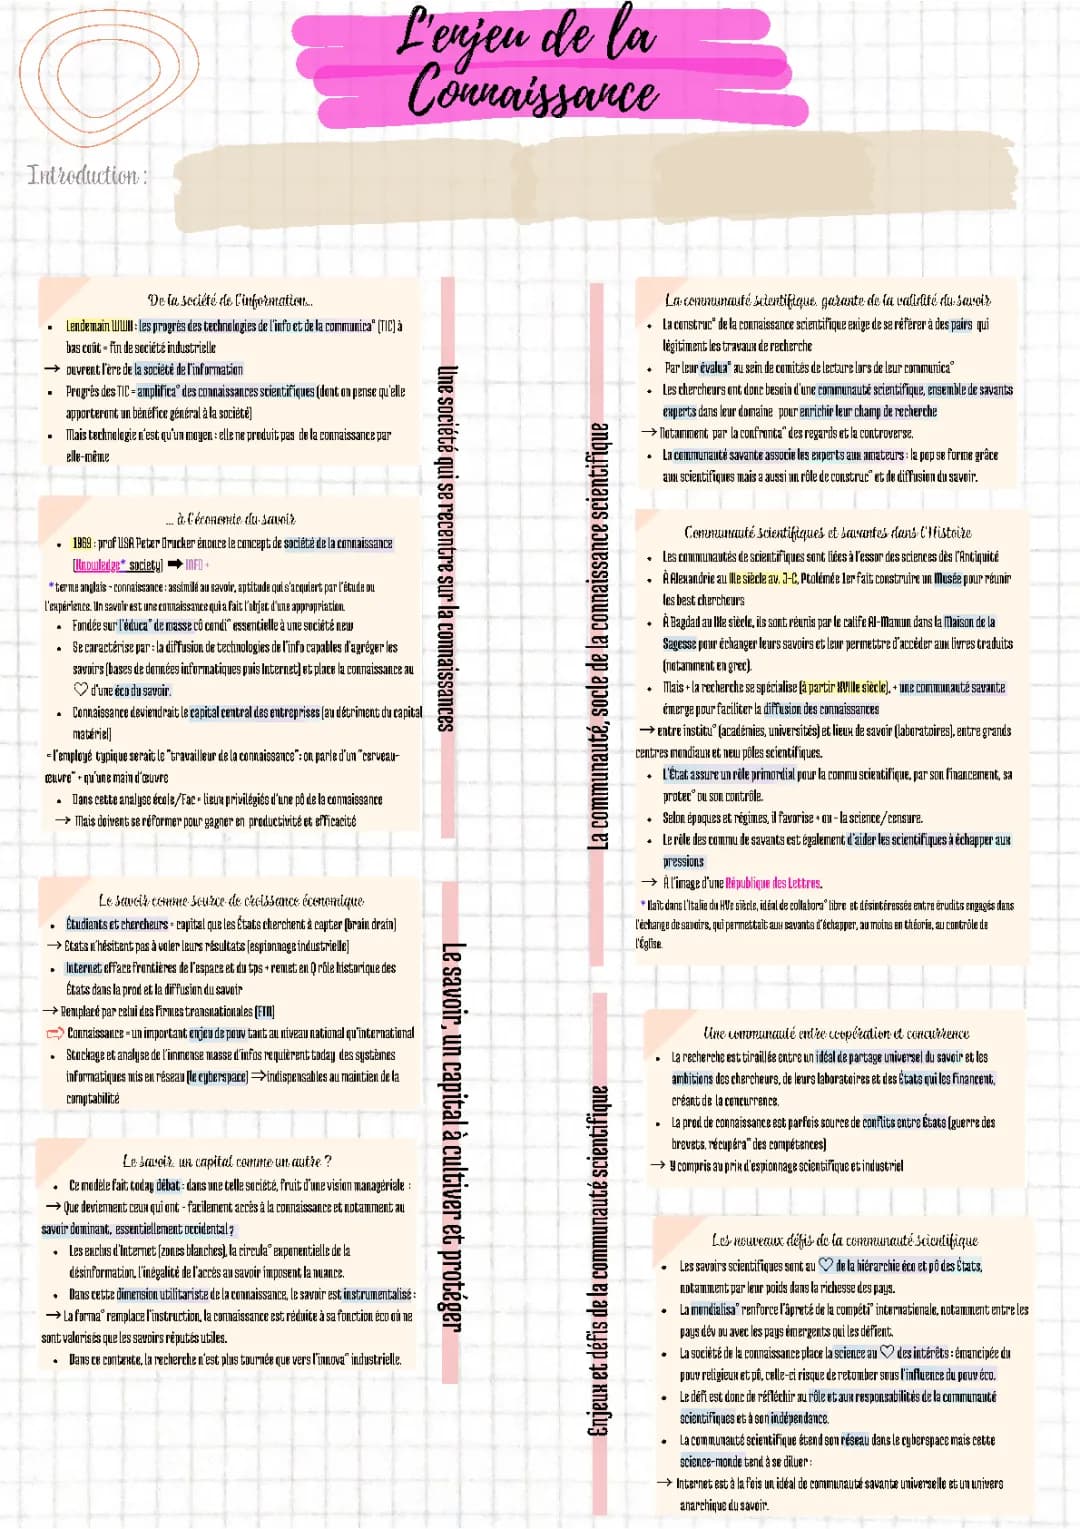 L'enjeu de la
Connaissance
Introduction :
De la société de l'information...
• Lendemain WWII : les progrès des technologies de l'info et de la communica° (TIC) à
bas coût = fin de société industrielle
→ ouvrent l'ère de la société de l'information
• Progrès des TIC = amplifica° des connaissances scientifiques (dont on pense qu'elle
apporteront un bénéfice général à la société)
• Mais technologie n'est qu'un moyen : elle ne produit pas de la connaissance par
elle-même
... à l'économie du savoir
• 1969 : prof USA Peter Drucker énonce le concept de société de la connaissance
(Knowledge* society) ➡ INFO +
* terme anglais - connaissance : assimilé au savoir, aptitude qui s'acquiert par l'étude ou
l'expérience. Un savoir est une connaissance qui a fait l'objet d'une appropriation.
• Fondée sur l'éduca° de masse cô condi° essentielle à une société new
• Se caractérise par : la diffusion de technologies de l'info capables d'agréger les
savoirs (bases de données informatiques puis Internet) et place la connaissance au
♡ d'une éco du savoir.
• Connaissance deviendrait le capital central des entreprises (au détriment du capital
matériel)
= l'employé typique serait le "travailleur de la connaissance": on parle d'un "cerveau-
œuvre" + qu'une main d'œuvre
• Dans cette analyse école/Fac = lieux privilégiés d'une pô de la connaissance
→ Mais doivent se réformer pour gagner en productivité et efficacité
Une société qui se recentre sur la connaissances
Le savoir comme source de croissance économique
• Étudiants et chercheurs = capital que les États cherchent à capter (brain drain)
→ Etats n'hésitent pas à voler leurs résultats (espionnage industrielle)
• Internet efface frontières de l'espace et du tps + remet en Q rôle historique des
États dans la prod et la diffusion du savoir
→ Remplacé par celui des Firmes transnationales (FTN)
⇨ Connaissance = un important enjeu de pouv tant au niveau national qu'international
• Stockage et analyse de l'immense masse d'infos requièrent today des systèmes
informatiques mis en réseau (le cyberspace) ⇒ indispensables au maintien de la
comptabilité
Le savoir, un capital comme un autre ?
• Ce modèle fait today débat : dans une telle société, fruit d'une vision managériale :
→ Que deviennent ceux qui ont - facilement accès à la connaissance et notamment au
savoir dominant, essentiellement occidental ?
• Les exclus d'Internet (zones blanches), la circula° exponentielle de la
désinformation, l'inégalité de l'accès au savoir imposent la nuance.
• Dans cette dimension utilitariste de la connaissance, le savoir est instrumentalisé :
→ La forma° remplace l'instruction, la connaissance est réduite à sa fonction éco où ne
sont valorisés que les savoirs réputés utiles.
• Dans ce contexte, la recherche n'est plus tournée que vers l'innova° industrielle.
Le savoir, un capital à cultiver et protéger
La communauté scientifique, garante de la validité du savoir
• La construc° de la connaissance scientifique exige de se référer à des pairs qui
légitiment les travaux de recherche
• Par leur évalua° au sein de comités de lecture lors de leur communica°
• Les chercheurs ont donc besoin d'une communauté scientifique, ensemble de savants
experts dans leur domaine pour enrichir leur champ de recherche
→ Notamment par la confronta° des regards et la controverse.
• La communauté savante associe les experts aux amateurs : la pop se forme grâce
aux scientifiques mais a aussi un rôle de construc° et de diffusion du savoir.
Communauté scientifiques et savantes dans l'Histoire
• Les communautés de scientifiques sont liées à l'essor des sciences dès l'Antiquité
• À Alexandrie au IIIe siècle av. J-C, Ptolémée 1er fait construire un Musée pour réunir
les best chercheurs
• À Bagdad au IXe siècle, ils sont réunis par le calife Al-Mamun dans la Maison de la
Sagesse pour échanger leurs savoirs et leur permettre d'accéder aux livres traduits
(notamment en grec).
• Mais + la recherche se spécialise (à partir XVIIIe siècle), + une communauté savante
émerge pour faciliter la diffusion des connaissances
→ entre institu° (académies, universités) et lieux de savoir (laboratoires), entre grands
centres mondiaux et new pôles scientifiques.
• L'État assure un rôle primordial pour la commu scientifique, par son financement, sa
protec° ou son contrôle.
• Selon époques et régimes, il favorise + ou - la science/censure.
• Le rôle des commu de savants est également d'aider les scientifiques à échapper aux
pressions
→ À l'image d'une République des Lettres.
* Naît dans l'Italie du XVe siècle, idéal de collabora° libre et désintéressée entre érudits engagés dans
l'échange de savoirs, qui permettait aux savants d'échapper, au moins en théorie, au contrôle de
l'Église.
La communauté, socle de la connaissance scientifique
Une communauté entre coopération et concurrence
• La recherche est tiraillée entre un idéal de partage universel du savoir et les
ambitions des chercheurs, de leurs laboratoires et des États qui les financent,
créant de la concurrence.
• La prod de connaissance est parfois source de conflits entre États (guerre des
brevets, récupéra° des compétences)
→ Y compris au prix d'espionnage scientifique et industriel
Les nouveaux défis de la communauté scientifique
• Les savoirs scientifiques sont au ♡ de la hiérarchie éco et pô des États,
notamment par leur poids dans la richesse des pays.
• La mondialisa° renforce l'âpreté de la compéti° internationale, notamment entre les
pays dév ou avec les pays émergents qui les défient.
• La société de la connaissance place la science au ♡ des intérêts : émancipée du
pouv religieux et pô, celle-ci risque de retomber sous l'influence du pouv éco.
• Le défi est donc de réfléchir au rôle et aux responsabilités de la communauté
scientifiques et à son indépendance.
• La communauté scientifique étend son réseau dans le cyberspace mais cette
science-monde tend à se diluer :
→ Internet est à la fois un idéal de communauté savante universelle et un univers
anarchique du savoir.
Enjeux et défis de la communauté scientifique